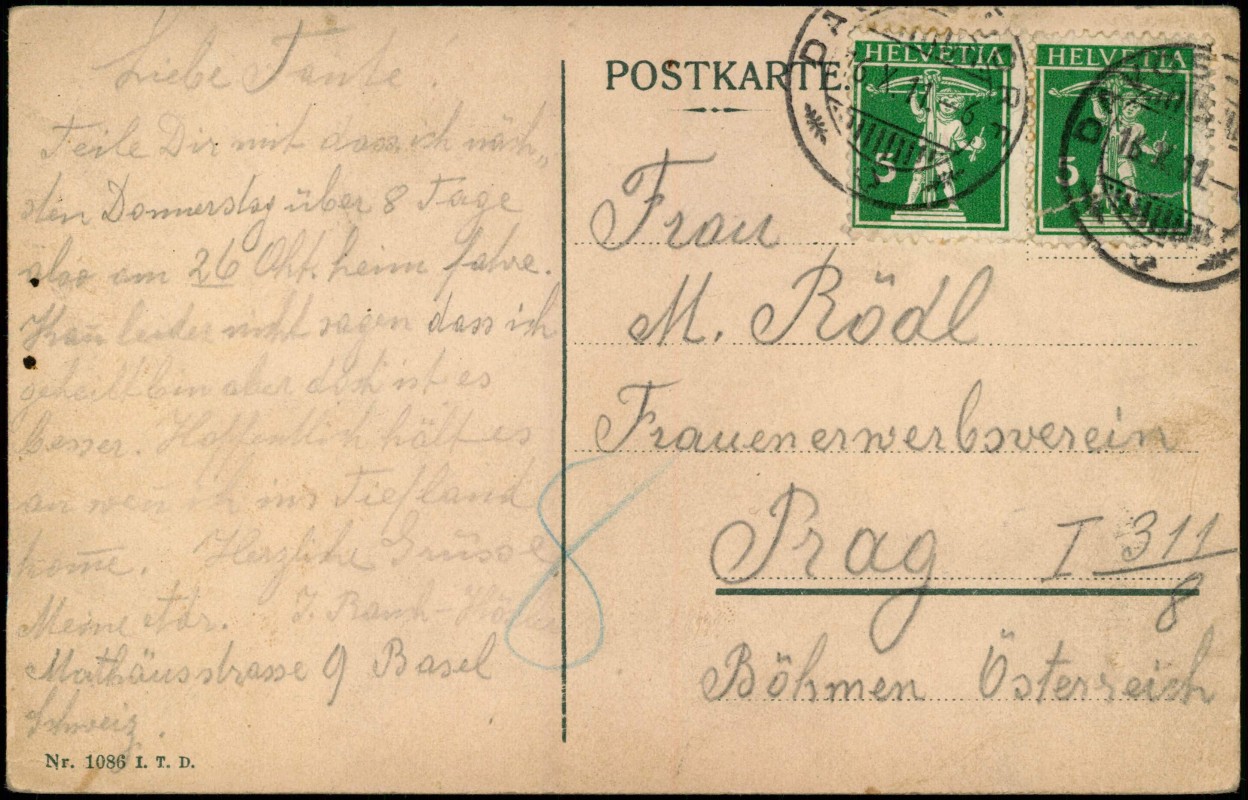 Liebe Tante!
Teile Dir mit dass ich näch„
sten Donnerstag über 8 Tage
also am 26 Okt. heim fahre.
Kan̄ leider nicht sagen dass ich
geheilt bin aber doch ist es
besser. Hoffentlich hält es
an wen̄ ich ins Tiefland
kom̄e. Herzliche Grüsse
Meine Adr. J.
Mathäusstrasse 9 Basel
Schweiz.
Nr. 1086 I. T. D.
POSTKARTE.
HELVETIA
5
HELVETIA
5
16.X.11.
16.X.11.
Frau
M. Rödl
Frauenerwerbsverein
Prag I 311/8
Böhmen Österreich
8